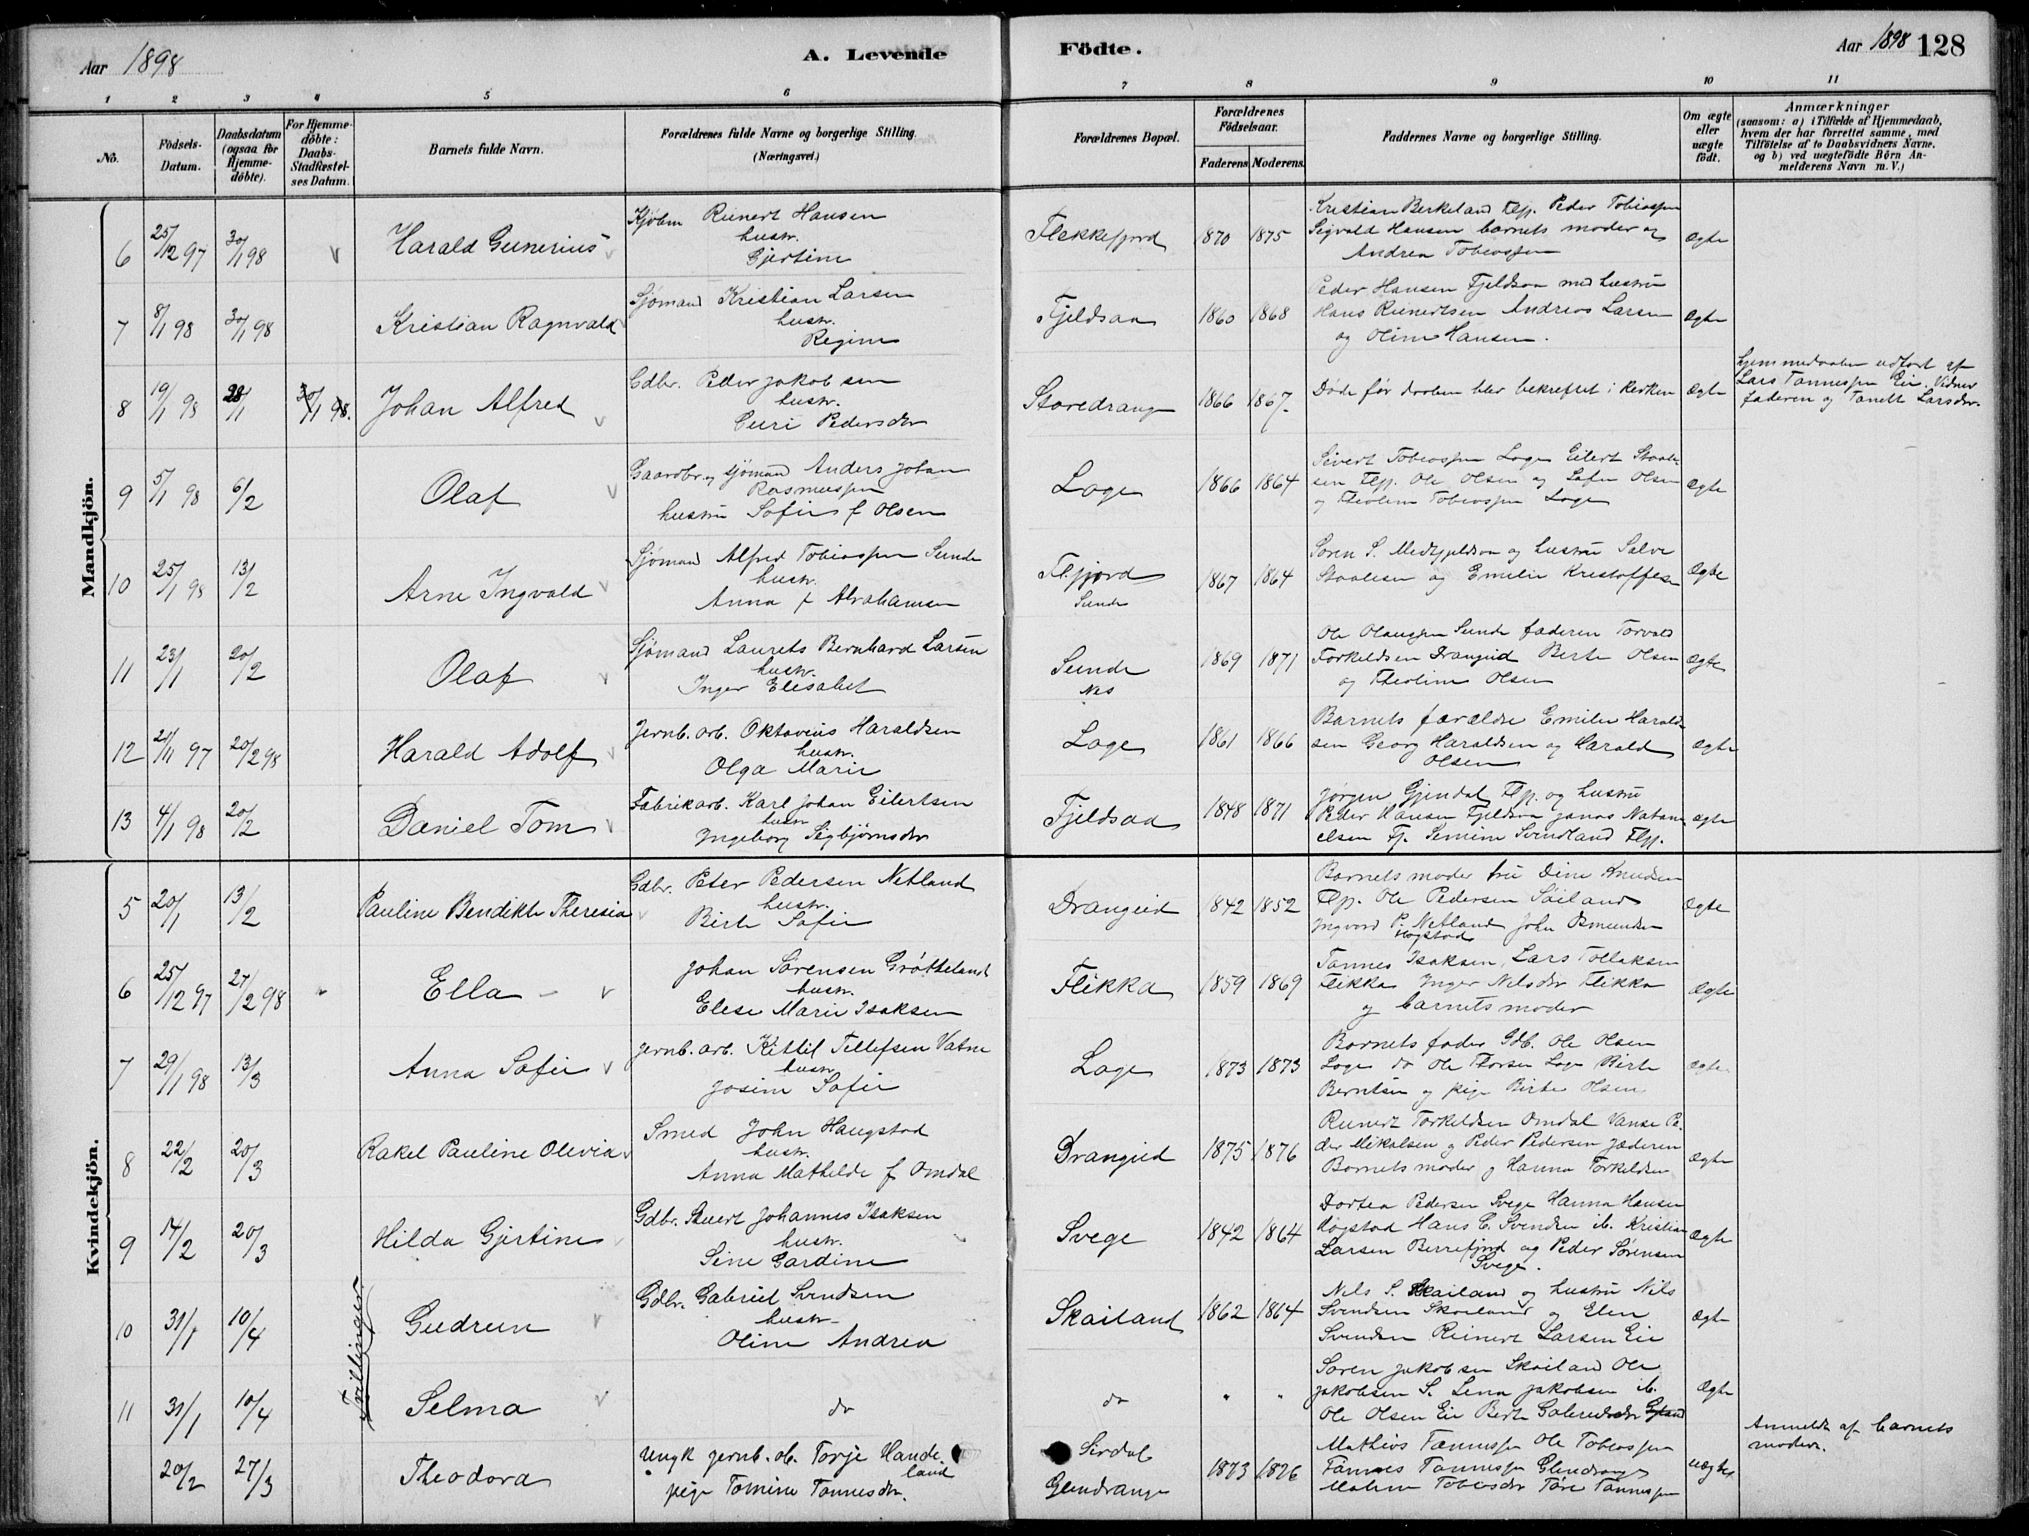 Aar 1898
A. Levende
Födte.
Aar 1898 128
1 2 3 4 5 6 7 8 9 10 11
No.
Födsels-Datum.
Daabsdatum (ogsaa for Hjemme-döbte).
For Hjemme-döbte: Daabs-Stadfæstel-ses Datum.
Barnets fulde Navn.
Forældrenes fulde Navne og borgerlige Stilling. (Næringsvei.)
Forældrenes Bopæl.
Forældrenes Födselsaar.
Faderens Moderens
Faddernes Navne og borgerlige Stilling.
Om ægte eller uægte födt.
Anmærkninger
(saasom: a) i Tilfælde af Hjemmedaab, hvem der har forrettet samme, med Tilföielse af to Daabsvidners Navne, og b) ved uægtefödte Börn An-melderens Navn m. V.)
Mandkjön.
6 25/12 97 30/1 98 Harald Gunerius
Reinert Hansen
hustr.
Gjertine
Flekkefjord 1870 1875
Kristian Berkeland Flj. Peder Tobiassen
Sigvald Hansen barnets moder og
Andrea Tobiassen
ægte
7 8/1 98 30/1 98 Kristian Ragnvald
Sjømand Kristian Larsen
hustr.
Regine
Fjeldsaa 1860 1868
Peder Hansen Fjeldsaa med hustru
Hans Reinertsen Andreas Larsen
og Oline Hansen.
ægte
8 19/1 98 28/1 30/1 98. Johan Alfred
Gdbr. Peder Jakobsen
hustr.
Guri Pedersdtr
Storedrange 1866 1867
Døde før daaben blev bekreftet i kirken
ægte
hjemmedaaben udført af
Lars Tønnessen Eie. Vidner
faderen og Tanette Larsdtr.
9 5/1 98 6/2 Olaf
Gaardbr. og sjømand Anders Johan
Rasmussen
hustru Sofie f Olsen
Loge 1866 1864
Sivert Tobiassen Loge Eilert Staale-
sen Flj. Ole Olsen og Sofie Olsen
og Theoline Tobiassen Loge
ægte
10 25/1 98 13/2 Arne Ingvald
Sjømand Alfred Tobiassen Sunde
hustr.
Anna f Abrahamsen
Fl.fjord
Sunde
1867 1864
Søren S. Midtfjeldsaa og hustru Salve
Staalesen og Emilie Kristoffersen
ægte
11 23/1 20/2 Olaf
Sjømand Laurets Bernhard Larsen
hustr.
Inger Elisabet
Sunde
Nes
1869 1871
Ole Olaussen Sunde faderen Torvald
Torkeldsen Drangeid Berte Olsen
og Theoline Olsen
ægte
12 21/11 97 20/2 98 Harald Adolf
Jernb. arb. Oktavius Haraldsen
hustr.
Olga Marie
Loge 1861 1866
Barnets forældre Emilie Harald-
sen Georg Haraldsen og Harald
Olsen
ægte
13 4/1 98 20/2 Daniel Tom
Fabrikarb. Karl Johan Eilertsen
hustr
Ingeborg Sigbjørnsdtr
Fjeldsaa 1848 1871
Jørgen Gjendal Flj. og hustru
Peder Hansen Fjeldsaa Jonas Natana-
elsen Fj. Semine Svindland Flj.
ægte
Kvindekjön.
5 20/1 13/2 Pauline Bendikte Theresia
Gdbr. Peter Pedersen Netland
hustr.
Birte Sofie
Drangeid 1842 1852
Barnets moder fru Dine Knudsen
Flj. Ole Pedersen Søiland
Ingvard P. Netland John Osmundsen
Høgstad
ægte
6 25/12 97 27/2 98 Ella
Johan Sørensen Grøtteland
hustr.
Elese Marie Isaksen
Flikka 1859 1869
Tønnes Isaksen, Lars Tollaksen
Flikka Inger Nilsdtr Flikka
og barnets moder
ægte
7 29/1 98 13/3 Anna Sofie
Jernb. arb. Kittil Tellefsen Vatne
hustr
Josine Sofie
Loge 1873 1873
Barnets fader Gdb. Ole Olsen
Loge do Ole Thorsen Loge Birte
Berntsen og pige Birte Olsen
ægte
8 22/2 20/3 Rakel Pauline Olevia
Smed John Haugstad
hustr.
Anna Mathilde f Omdal
Drangeid 1875 1876
Reinert Torkeldsen Omdal Vanse Pe-
der Mikalsen og Peder Pedersen Jæderen
Barnets moder og Hanna Torkeldsen
ægte
9 14/2 20/3 Hilda Gjertine
Gdbr. Sivert Johannes Isaksen
hustr.
Sine Gardine
Svege 1842 1864
Dortea Pedersen Svege Hanna Hansen
Høgstad Hans C. Svendsen ib. Kristian
Larsen Berrefjord og Peder Sørensen
Svege.
ægte
Tvillinger
10 31/1 10/4 Gudrun
Gdbr. Gabriel Svendsen
hustr
Oline Andrea
Skailand 1862 1864
Nils S. Skailand og hustru Nils
Svendsen Skailand og Elen
Svendsen Reinert Larsen Eie
ægte
11 31/1 10/4 Selma
do
do " "
Søren Jakobsen Skailand Ole
Jakobsen S. Lena Jakobsen ib.
Ole Olsen Eie Berte Gabrielsdtr
ægte
20/2 27/3 Theodora
Ungk jernb. ab. Torje Hande-
land
pige Tomine Tønnesdtr.
Sirdal
Glendrange
1873 1876
Mathias Tønnessen Ole Tobiassen
Tønnes Tønnessen Glendrange
Malene Tobiasdtr Tøre Tønnessen
uægte
Anmeldt af barnets
moder.